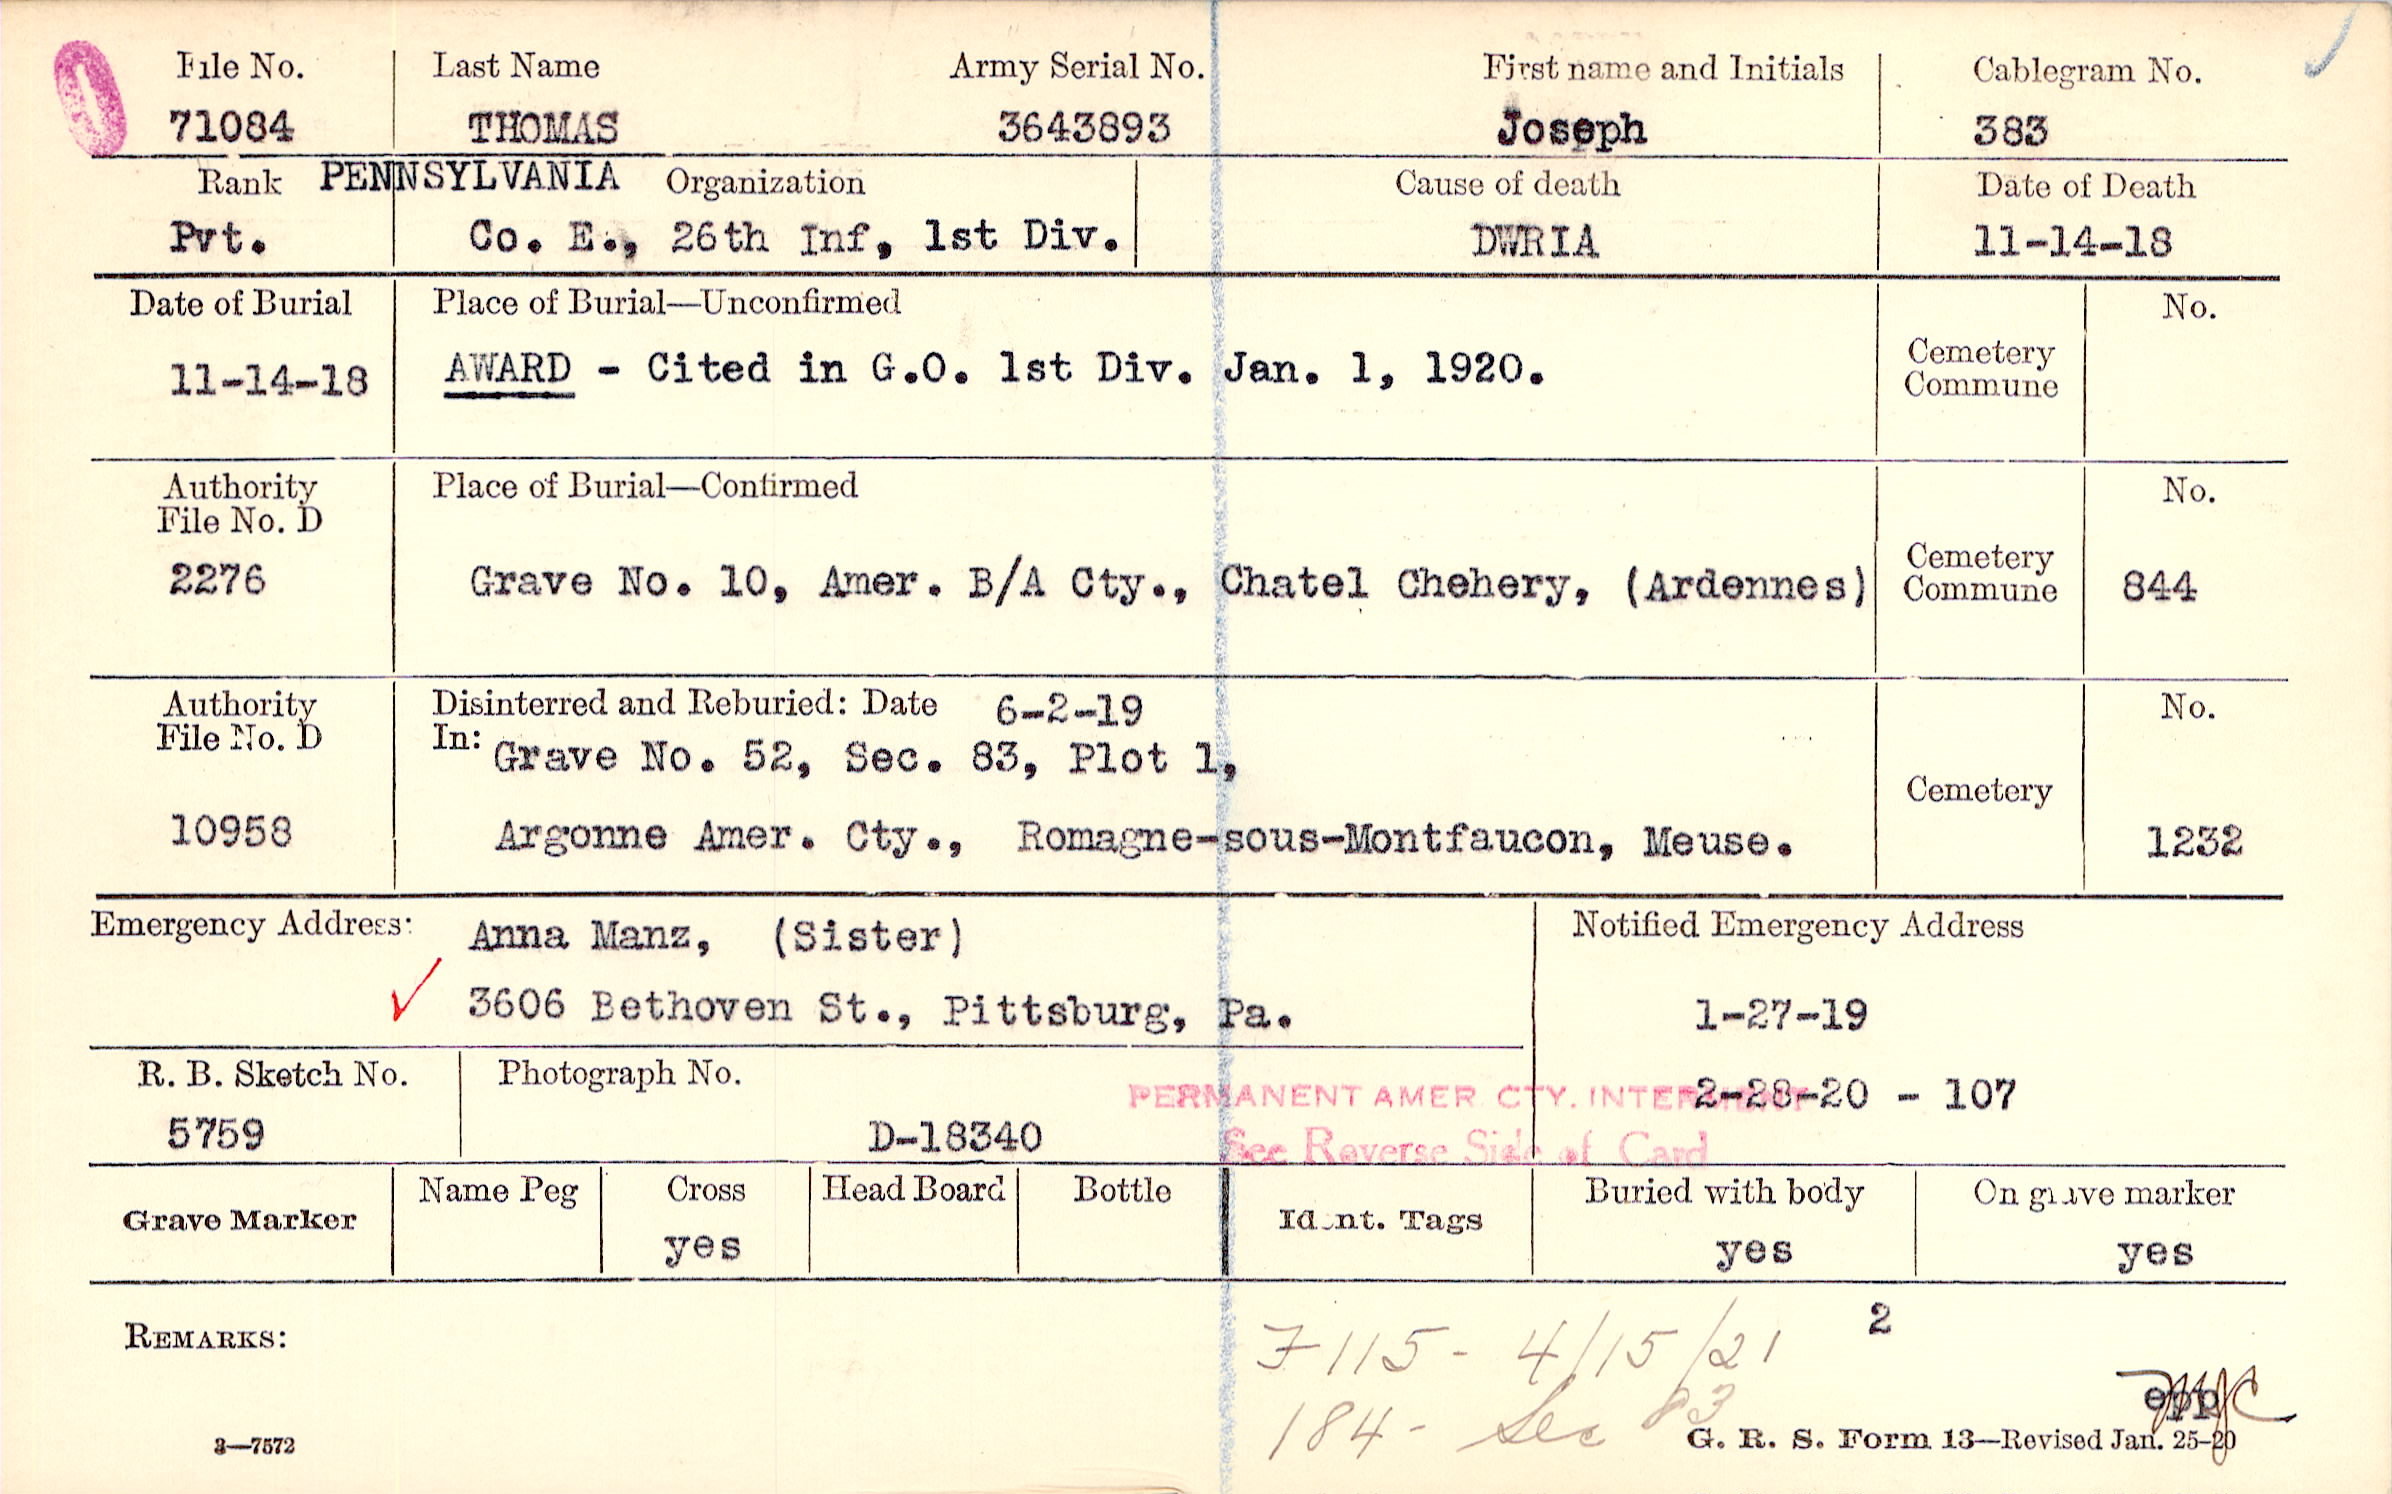 File No. Last Name Army Serial No. First name and Initials Cablegram No.
71084 THOMAS 3643893 Joseph 383
Rank PENNSYLVANIA Organization Cause of death Date of Death
Pvt. Co. E., 26th Inf, 1st Div. DWRIA 11-14-18
Date of Burial Place of Burial—Unconfirmed No.
11-14-18 AWARD - Cited in G.O. 1st Div. Jan. 1, 1920. Cemetery
Commune
Authority Place of Burial—Confirmed No.
File No. D
2276 Grave No. 10, Amer. B/A Cty., Chatel Chehery, (Ardennes) Cemetery
Commune 844
Authority Disinterred and Reburied: Date 6-2-19 No.
File No. D In: Grave No. 52, Sec. 83, Plot 1,
Cemetery
10958 Argonne Amer. Cty., Romagne-sous-Montfaucon, Meuse. 1232
Emergency Address: Anna Manz, (Sister) Notified Emergency Address
3606 Bethoven St., Pittsburg, Pa. 1-27-19
R. B. Sketch No. Photograph No. PERMANENT AMER. CTY. INTERMENT 2-28-20 - 107
5759 D-18340 See Reverse Side of Card
Grave Marker Name Peg Cross Head Board Bottle Ident. Tags Buried with body On grave marker
yes yes yes
2
REMARKS: F115- 4/15/21
epp
184- Sec 83
3—7572 G. R. S. Form 13—Revised Jan. 25-20